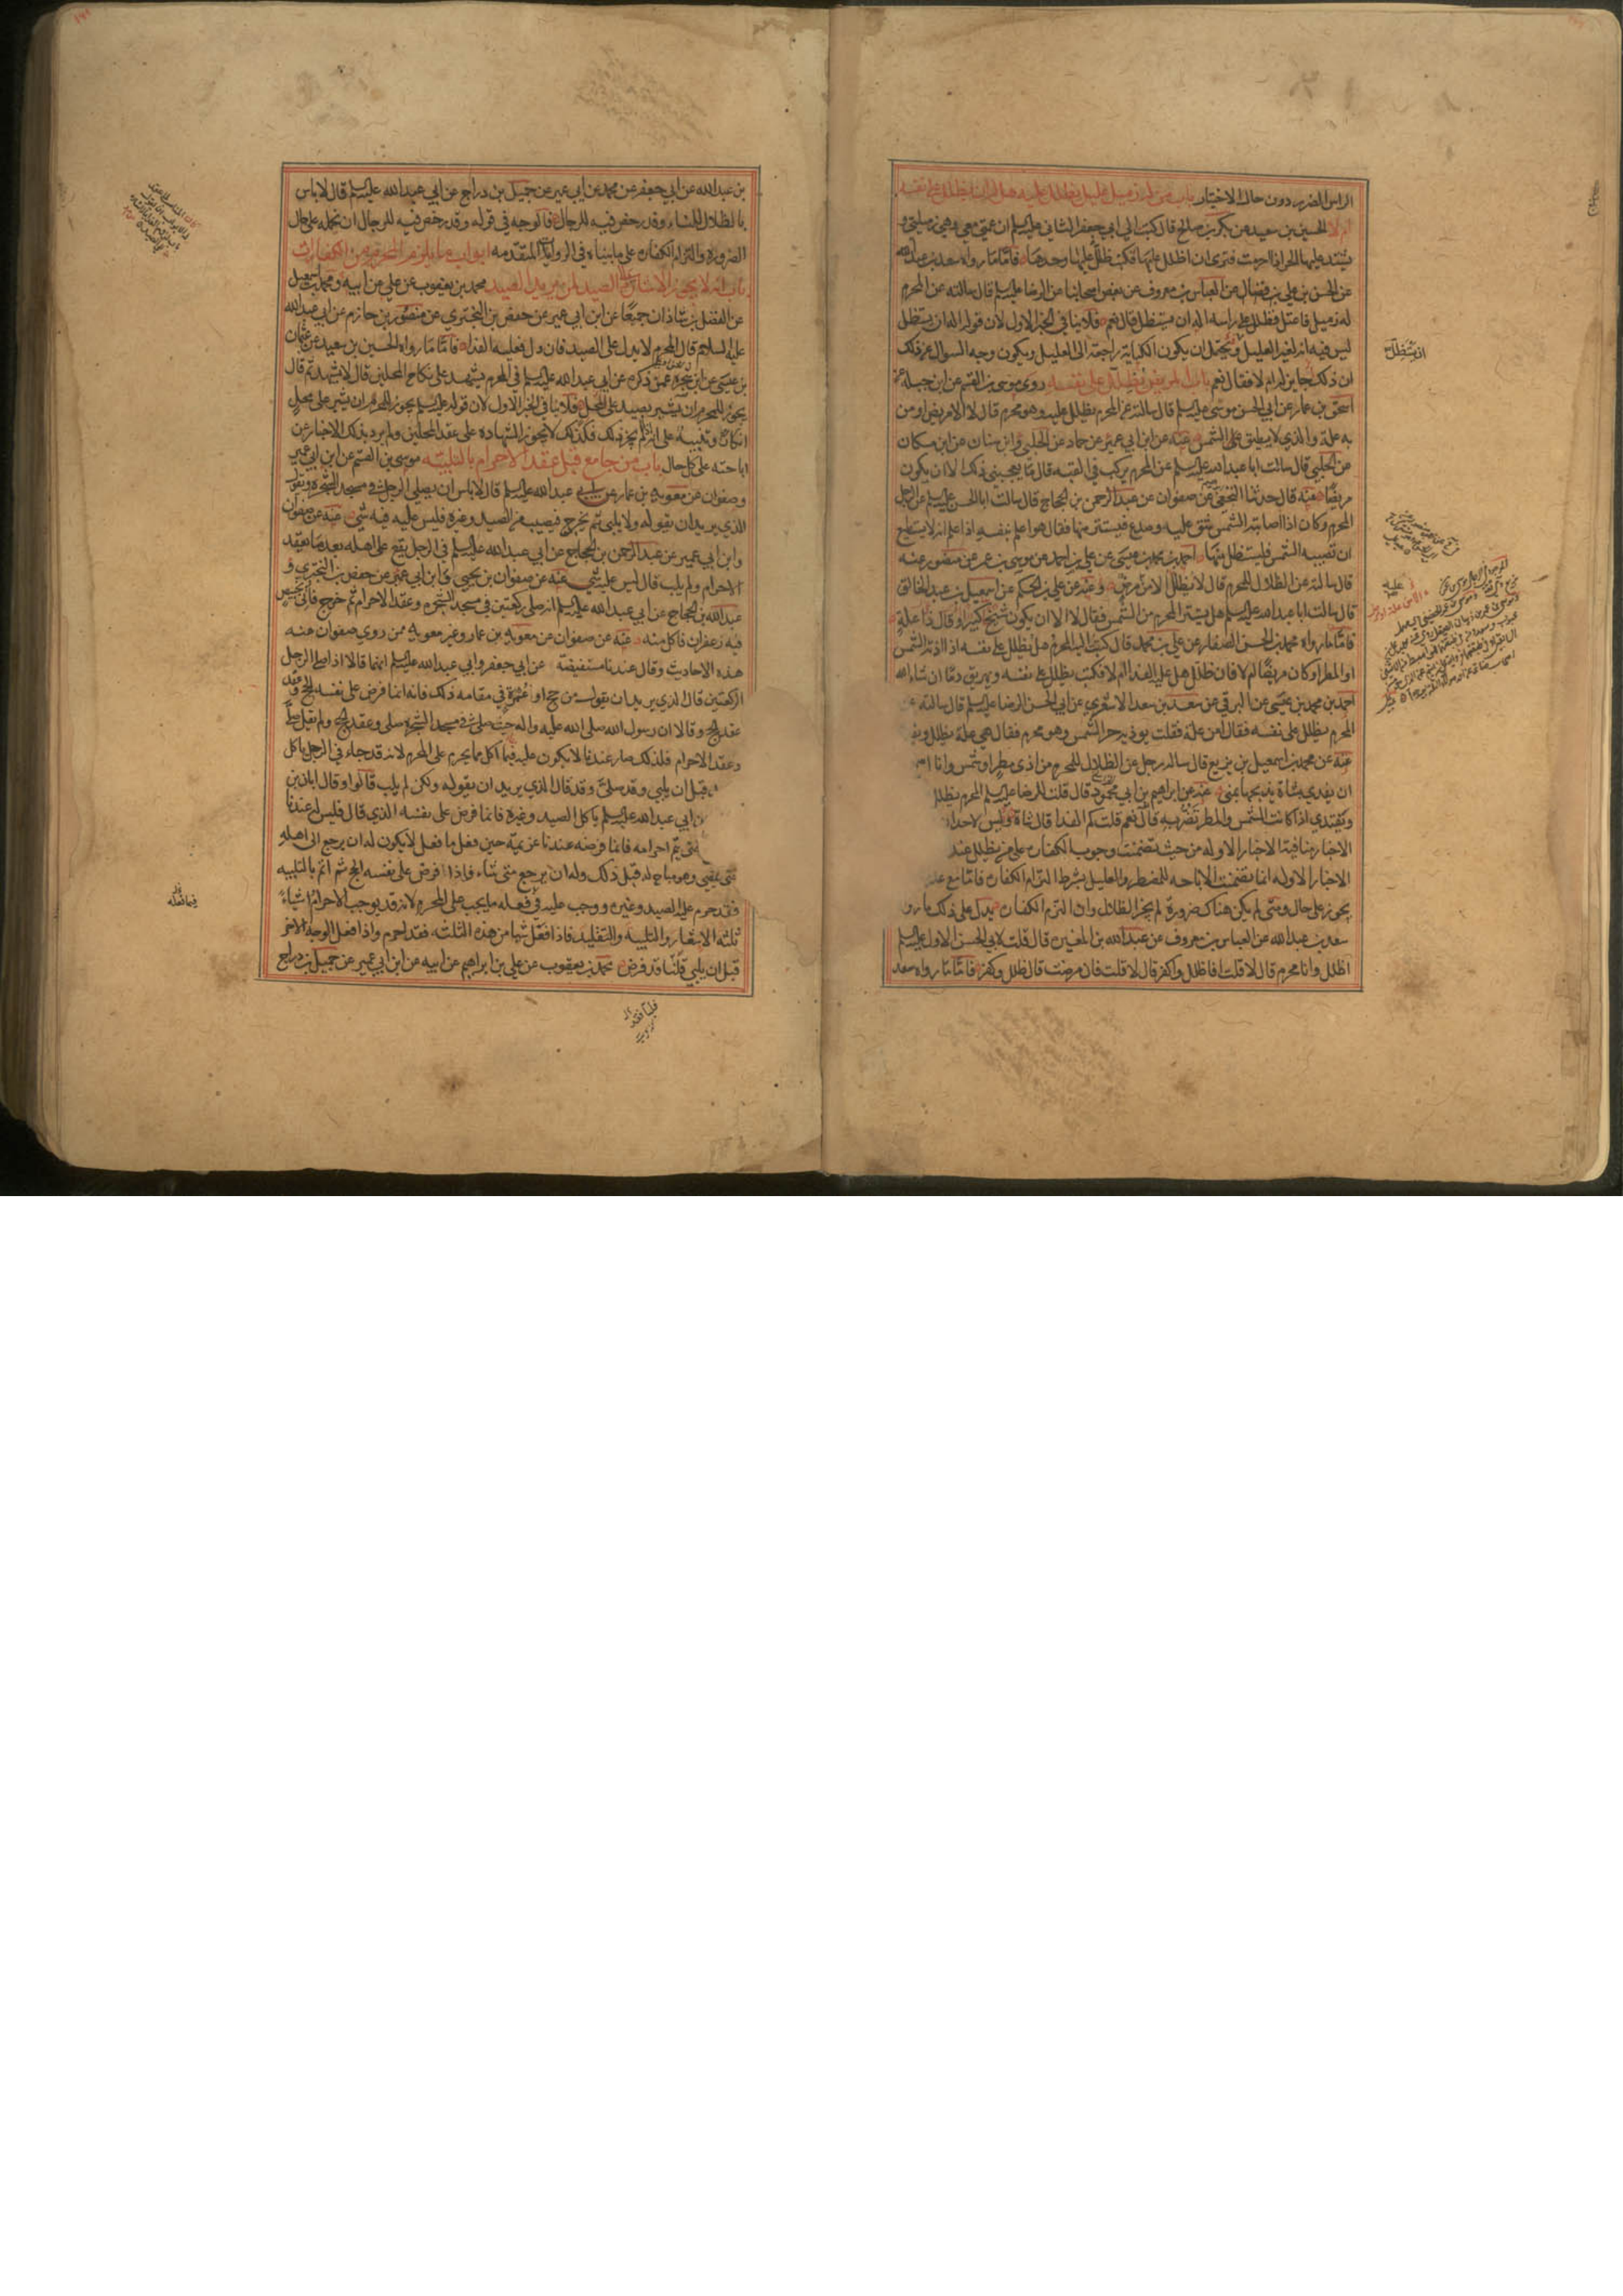 الراس الضرير دون حال الاختيار باب من له زميل عليل يظلل عليه هل له ان يظلل على نفسه
ام لا الحسين بن سعيد عن بكر بن صالح قال كتبت الى ابي جعفر الثاني عليه السلم ان عمتي معي وهي زميلتي و
يشتد عليها الحر اذا احرمت فترى ان اظلل علي وعليها فكتب ظلل عليها وحدها فاما ما رواه سعد بن عبد الله
عن الحسن بن علي بن فضال عن العباس بن معروف عن بعض اصحابنا عن الرضا عليه السلم قال سالته عن المحرم
له زميل فاعتل فظلل على راسه اله ان يستظل قال نعم فلا ينافي الخبر الاول لان قوله اله ان يستظل
ليس فيه انه لغير العليل ويحتمل ان يكون الكناية راجعة الى العليل ويكون وجه السوال عن ذلك
ان ذلك جايز له ام لا فقال نعم باب المريض يظلل على نفسه روى موسى بن القسم عن ابن جبلة عن
اسحق بن عمار عن ابي الحسن موسى عليه السلم قال سالته عن المحرم يظلل عليه وهو محرم قال لا الا مريض او من
به علة والذي لا يطيق حر الشمس عنه عن ابن ابي عمير عن حماد عن الحلبي وابن سنان عن ابن مسكان
عن الحلبي قال سالت ابا عبد الله عليه السلم عن المحرم يركب في القبة قال ما يعجبني ذلك الا ان يكون
مريضا عنه قال حدثنا النخعي عن صفوان عن عبد الرحمن بن الحجاج قال سالت ابا الحسن عليه السلم عن الرجل
المحرم وكان اذا اصابته الشمس شق عليه وصدع فيستتر منها فقال هو اعلم بنفسه اذا علم انه لا يستطيع
ان تصيبه الشمس فليستظل منها احمد بن محمد بن عيسى عن علي بن احمد عن موسى بن عمر عن منصور عنه
قال سالته عن الظلال للمحرم قال لا يظلل الا من مرض وعنه عن علي بن الحكم عن اسمعيل بن عبد الخالق
قال سالت ابا عبد الله عليه السلم هل يستتر المحرم من الشمس فقال لا الا ان يكون شيخ كبير او قال ذا علة
فاما ما رواه محمد بن الحسن الصفار عن علي بن محمد قال كتبت اليه المحرم هل يظلل على نفسه اذا اذته الشمس
او المطر او كان مريضا ام لا فان ظلل هل عليه الفداء ام لا فكتب يظلل على نفسه ويهريق دما ان شاء الله
احمد بن محمد بن عيسى عن البرقي عن سعد بن سعد الاشعري عن ابي الحسن الرضا عليه السلم قال سالته عن
المحرم يظلل على نفسه فقال امن علة فقلت يوذيه حر الشمس وهو محرم فقال هي علة يظلل ويفدي
عنه عن محمد بن اسمعيل بن بزيع قال ساله رجل عن الظلال للمحرم من اذى مطر او شمس وانا اسمع
ان يفدي بشاة يذبحها بمنى عنه عن ابراهيم بن ابي محمود قال قلت للرضا عليه السلم المحرم يظلل
ويفتدي اذا كانت الشمس والمطر تضر به قال نعم قلت كم الفدا قال شاة وليس لاحد ان
الاخبار منافية الاخبار الاوله من حيث تضمنت وجوب الكفارة على من يظلل عند
الاخبار الاوله انما تضمنت الاباحه للمضطر والعليل بشرط التزام الكفارة فاما مع عدم
يجوز على حال ومتى لم يكن هناك ضرورة لم يجز الظلال وان التزم الكفارة يدل على ذلك ما رو
سعد بن عبد الله عن العباس بن معروف عن عبد الله بن المغيرة قال قلت لابي الحسن الاول عليه السلم
اظلل وانا محرم قال لا قلت افاظلل واكفر قال لا قلت فان مرضت قال ظلل وكفر فاما ما رواه سعد
ان يستظل
بن عبد الله عن ابي جعفر عن محمد بن ابي عمير عن جميل بن دراج عن ابي عبد الله عليه السلم قال لا باس
بالظلال للنساء وقد رخص فيه للرجال فالوجه في قوله وقد رخص فيه للرجال ان نحمله على حال
الضرورة والتزام الكفارة على ما بيناه في الروايات المتقدمة ابواب ما يلزم المحرم من الكفارات
باب انه لا يجوز الاشارة الى الصيد لمن يريد الصيد محمد بن يعقوب عن علي عن ابيه ومحمد بن اسمعيل
عن الفضل بن شاذان جميعا عن ابن ابي عمير عن حفص بن البختري عن منصور بن حازم عن ابي عبد الله
عليه السلام قال المحرم لا يدل على الصيد فان دل فعليه الفداء فاما ما رواه الحسين بن سعيد عن عثمان
بن عيسى عن ابن شجرة عمن ذكره عن ابي عبد الله عليه السلم في المحرم يشهد على نكاح المحلين قال لا يشهد ثم قال
يجوز للمحرم ان يشير بصيد على المحل فلا ينافي الخبر الاول لان قوله عليه السلم يجوز للمحرم ان يشير على محل
انكار وتنبيه على انه اذا لم يجز ذلك فكذلك لا يجوز الشهادة على عقد المحلين ولم يرد بذلك الاخبار عن
اباحته على كل حال باب من جامع قبل عقد الاحرام بالتلبية موسى بن القسم عن ابن ابي عمير
وصفوان عن معوية بن عمار عن ابي عبد الله عليه السلم قال لا باس ان يصلي الرجل في مسجد الشجرة ويقول
الذي يريد ان يقوله ولا يلبي ثم يخرج فيصيب من الصيد وغيره فليس عليه فيه شيء عنه عن صفوان
وابن ابي عمير عن عبد الرحمن بن الحجاج عن ابي عبد الله عليه السلم في الرجل يقع على اهله بعد ما يعقد
الاحرام ولم يلب قال ليس عليه شيء عنه عن صفوان بن يحيى وابن ابي عمير عن حفص بن البختري و
عبد الله بن الحجاج عن ابي عبد الله عليه السلم انه صلى ركعتين في مسجد الشجره وعقد الاحرام ثم خرج فاتي بخبيص
فيه زعفران فاكل منه عنه عن صفوان عن معويه بن عمار وغير معويه ممن روى صفوان عنه
هذه الاحاديث وقال عندنا مستفيضة عن ابي جعفر وابي عبد الله عليه السلم انهما قالا اذا صلى الرجل
الركعتين قال الذي يريد ان يقول من حج او عمرة في مقامه ذلك فانه انما فرض على نفسه الحج وعقد
عقد الحج وقالا ان رسول الله صلى الله عليه واله حيث صلى في مسجد الشجره صلى وعقد الحج ولم يقل صلى
وعقد الاحرام فلذلك صار عندنا لا يكون عليه فيما اكل مما يحرم على المحرم لانه قد جاء في الرجل ياكل
قبل ان يلبي وقد صلى وقد قال الذي يريد ان يقوله ولكن لم يلب قالوا وقال ابان بن
ابي عبد الله عليه السلم ياكل الصيد وغيره فانما فرض على نفسه الذي قال فليس له عندنا
حتى يتم احرامه فانما فرضه عندنا عزيمة حين فعل ما فعل لا يكون له ان يرجع الى اهله
حتى يمضي وهو مباح له قبل ذلك وله ان يرجع متى شاء فاذا فرض على نفسه الحج ثم اتم بالتلبيه
فقد حرم عليه الصيد وغيره ووجب عليه في فعله ما يجب على المحرم لانه قد يوجب الاحرام اشياء
ثلثه الاشعار والتلبيه والتقليد فاذا فعل شيا من هذه الثلثه فقد احرم واذا فعل الوجه الاخر
قبل ان يلبي فلبا فقد فرض محمد بن يعقوب عن علي بن ابراهيم عن ابيه عن ابن ابي عمير عن جميل بن دراج
فيما فعله
فلبا فقد